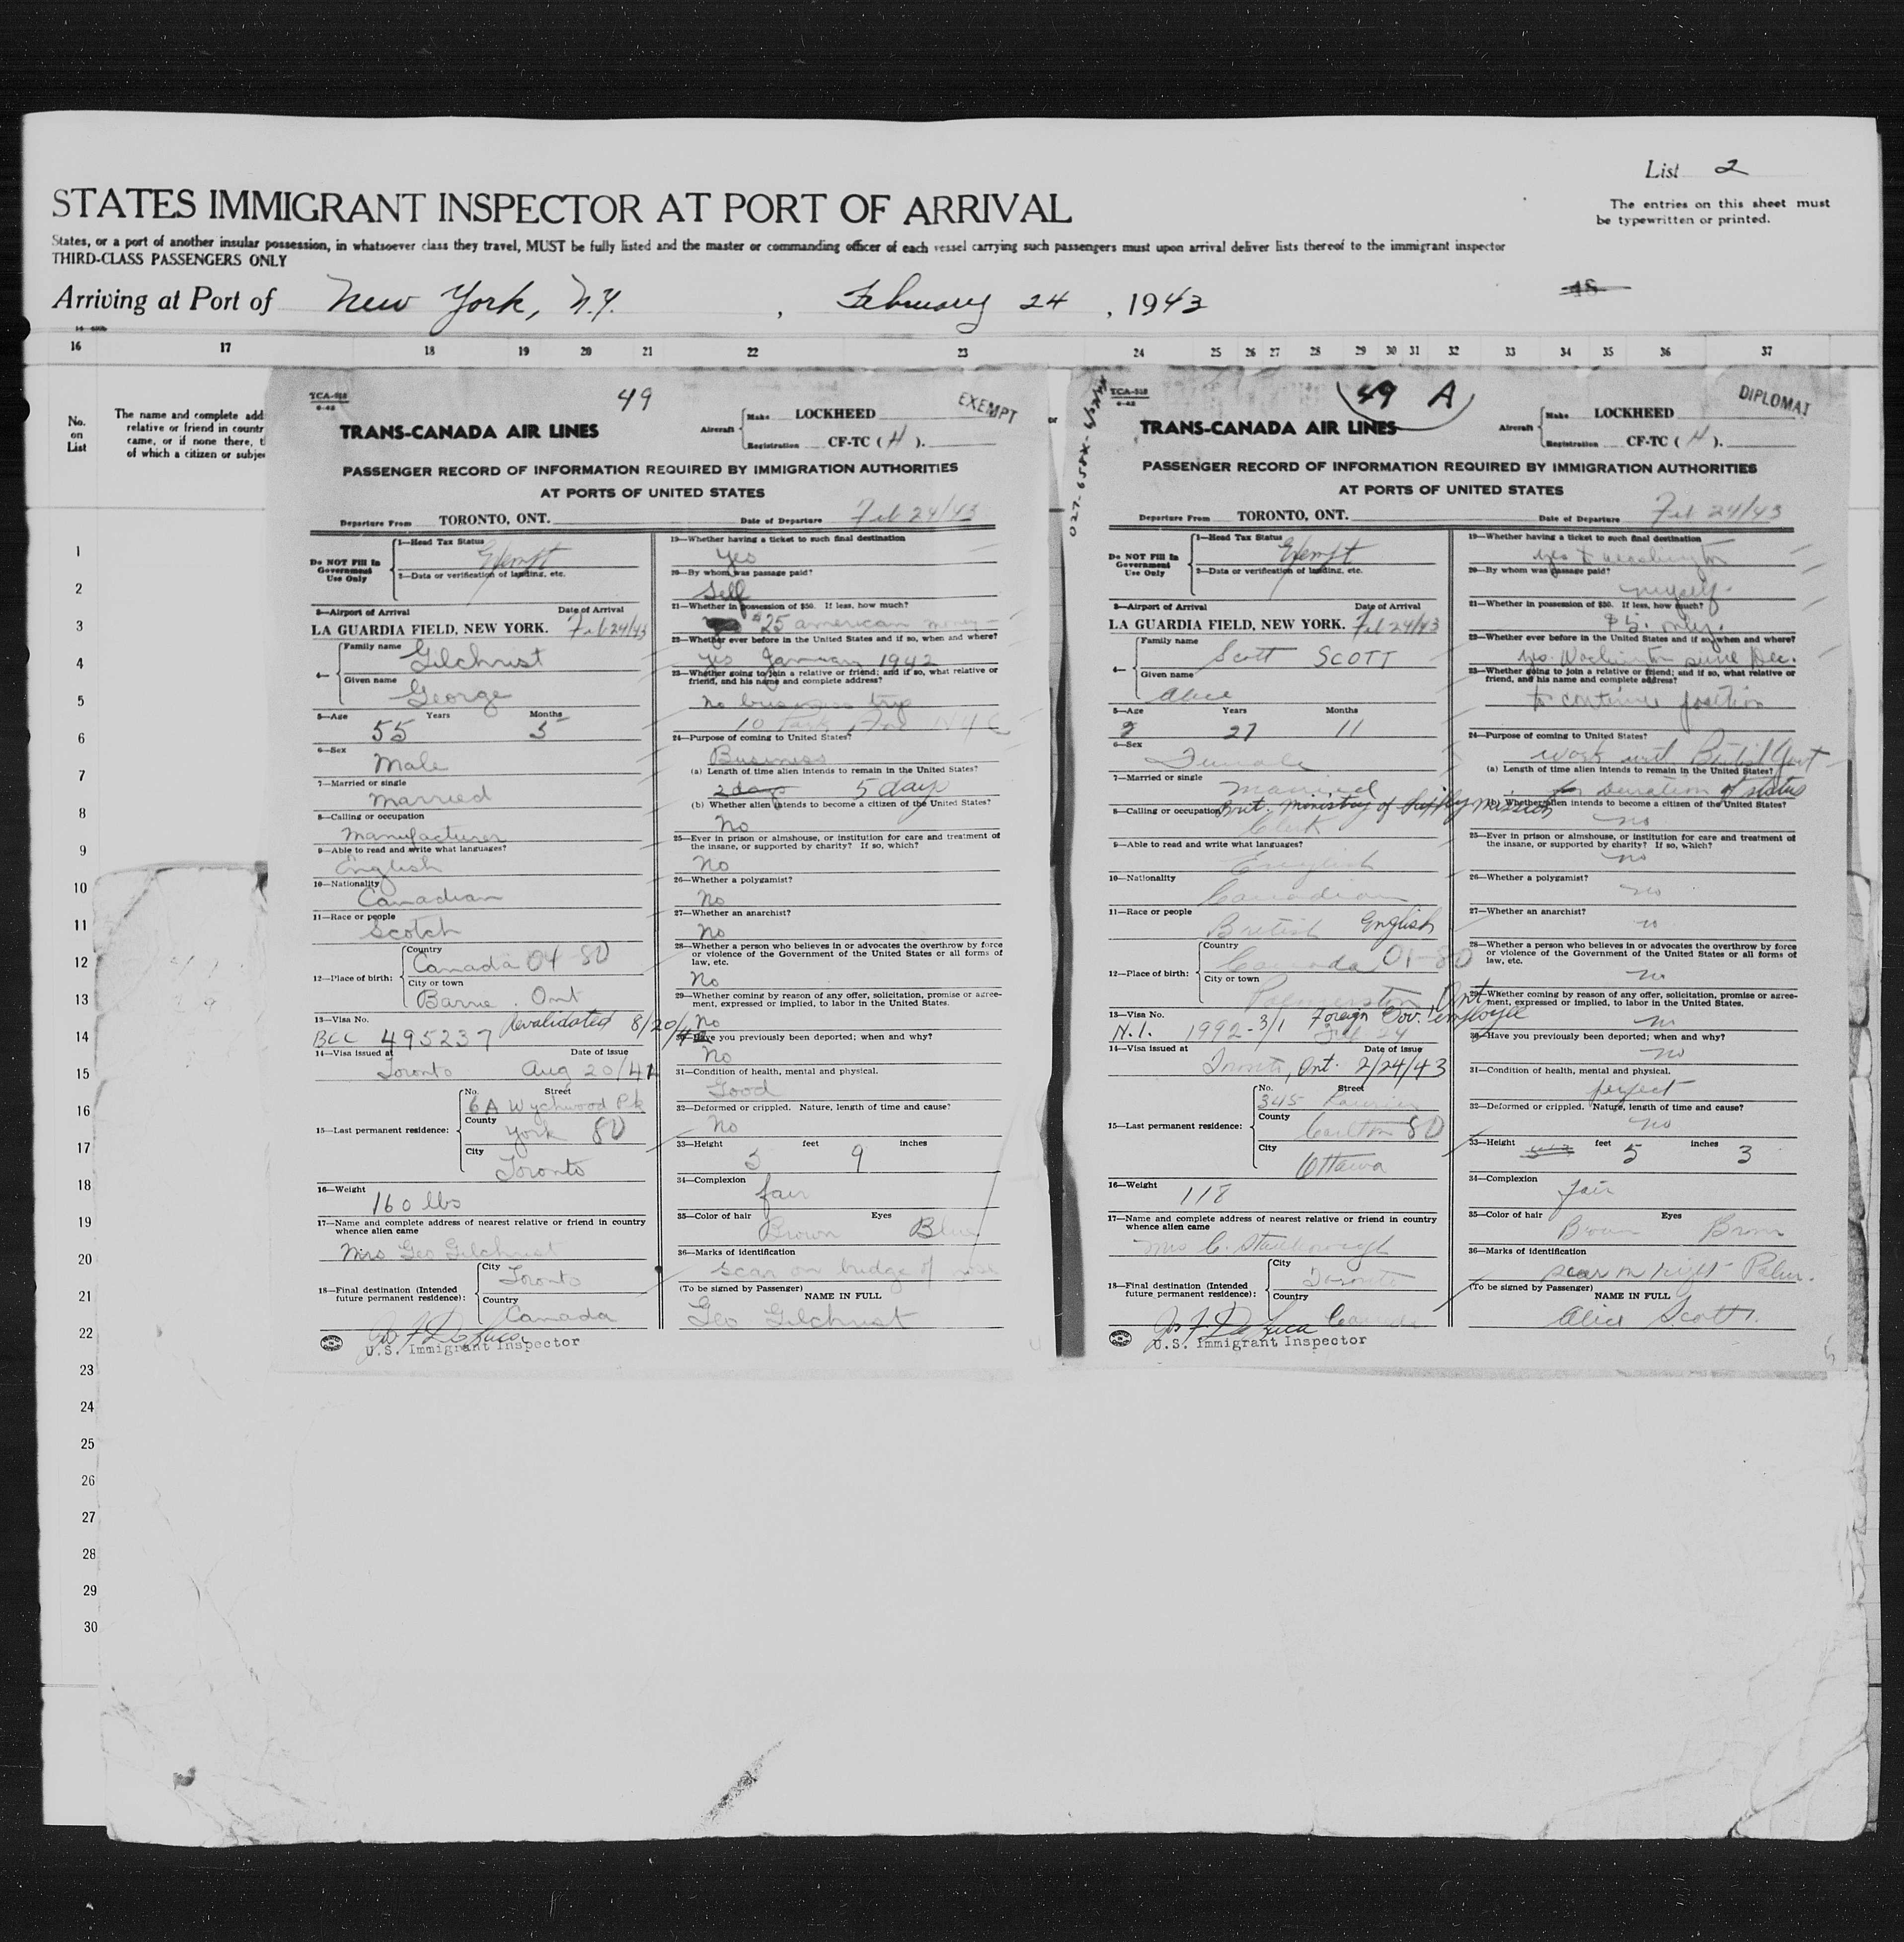 List 2
The entries on this sheet must
be typewritten or printed.
STATES IMMIGRANT INSPECTOR AT PORT OF ARRIVAL
States, or a port of another insular possession, in whatsoever class they travel, MUST be fully listed and the master or commanding officer of each vessel carrying such passengers must upon arrival deliver lists thereof to the immigrant inspector
THIRD-CLASS PASSENGERS ONLY
Arriving at Port of New York, N.Y. , February 24 , 1943
16 17 18 19 20 21 22 23 24 25 26 27 28 29 30 31 32 33 34 35 36 37
No.
on
List
The name and complete add
relative or friend in countr
came, or if none there, t
of which a citizen or subje
1
2
3
4
5
6
7
8
9
10
11
12
13
14
15
16
17
18
19
20
21
22
23
24
25
26
27
28
29
30
TCA-518
6-42
49
EXEMPT
TRANS-CANADA AIR LINES
Aircraft
Make LOCKHEED
Registration CF-TC ( H ).
PASSENGER RECORD OF INFORMATION REQUIRED BY IMMIGRATION AUTHORITIES
AT PORTS OF UNITED STATES
Departure From TORONTO, ONT. Date of Departure Feb 24/43
Do NOT Fill In
Government
Use Only
1—Head Tax Status
Exempt
2—Data or verification of landing, etc.
3—Airport of Arrival Date of Arrival
LA GUARDIA FIELD, NEW YORK. Feb 24/43
4—
Family name
Gilchrist
Given name
George
5—Age Years Months
55 5
6—Sex
Male
7—Married or single
Married
8—Calling or occupation
Manufacturer
9—Able to read and write what languages?
English
10—Nationality
Canadian
11—Race or people
Scotch
12—Place of birth:
Country
Canada 04 80
City or town
Barrie. Ont
13—Visa No. Revalidated 8/20/42
BCC 495237
14—Visa issued at Date of issue
Toronto Aug 20/41
15—Last permanent residence:
No. Street
6A Wychwood Pk
County
York 80
City
Toronto
16—Weight
160 lbs
17—Name and complete address of nearest relative or friend in country
whence alien came
Mrs Geo Gilchrist
18—Final destination (Intended
future permanent residence):
City
Toronto
Country
Canada
U.S. Immigrant Inspector
19—Whether having a ticket to such final destination
Yes
20—By whom was passage paid?
Self
21—Whether in possession of $50. If less, how much?
$25 american money
22—Whether ever before in the United States and if so, when and where?
yes January 1942
23—Whether going to join a relative or friend; and if so, what relative or
friend, and his name and complete address?
No business trip
10 Park NYC
24—Purpose of coming to United States?
Business
(a) Length of time alien intends to remain in the United States?
2 days 5 days
(b) Whether alien intends to become a citizen of the United States?
No
25—Ever in prison or almshouse, or institution for care and treatment of
the insane, or supported by charity? If so, which?
No
26—Whether a polygamist?
No
27—Whether an anarchist?
No
28—Whether a person who believes in or advocates the overthrow by force
or violence of the Government of the United States or all forms of
law, etc.
No
29—Whether coming by reason of any offer, solicitation, promise or agree-
ment, expressed or implied, to labor in the United States.
No
30—Have you previously been deported; when and why?
No
31—Condition of health, mental and physical.
Good
32—Deformed or crippled. Nature, length of time and cause?
No
33—Height feet inches
5 9
34—Complexion
fair
35—Color of hair Eyes
Brown Blue
36—Marks of identification
scar on bridge of nose
(To be signed by Passenger)
NAME IN FULL
Geo Gilchrist
TCA-518
6-42
49 A
DIPLOMAT
TRANS-CANADA AIR LINES
Aircraft
Make LOCKHEED
Registration CF-TC ( H ).
PASSENGER RECORD OF INFORMATION REQUIRED BY IMMIGRATION AUTHORITIES
AT PORTS OF UNITED STATES
Departure From TORONTO, ONT. Date of Departure Feb 24/43
Do NOT Fill In
Government
Use Only
1—Head Tax Status
Exempt
2—Data or verification of landing, etc.
3—Airport of Arrival Date of Arrival
LA GUARDIA FIELD, NEW YORK. Feb 24/43
4—
Family name
Scott SCOTT
Given name
Alice
5—Age Years Months
27 11
6—Sex
Female
7—Married or single
Married
8—Calling or occupation Brit. Ministry of Supply Mission
Clerk
9—Able to read and write what languages?
English
10—Nationality
Canadian
11—Race or people
British English
12—Place of birth:
Country
Canada 01-80
City or town
Palmerston, Ont
13—Visa No. Foreign Gov. employee
N.I. 1992-3/1 Feb 24
14—Visa issued at Date of issue
Toronto, Ont. 2/24/43
15—Last permanent residence:
No. Street
345 Laurier
County
Carlton 80
City
Ottawa
16—Weight
118
17—Name and complete address of nearest relative or friend in country
whence alien came
Mrs C.
18—Final destination (Intended
future permanent residence):
City
Toronto
Country
Canada
U.S. Immigrant Inspector
19—Whether having a ticket to such final destination
yes to Washington
20—By whom was passage paid?
myself.
21—Whether in possession of $50. If less, how much?
$5. only.
22—Whether ever before in the United States and if so, when and where?
yes. Washington since Dec.
23—Whether going to join a relative or friend; and if so, what relative or
friend, and his name and complete address?
to continue position
24—Purpose of coming to United States?
work with British Govt
(a) Length of time alien intends to remain in the United States?
for Duration of status
(b) Whether alien intends to become a citizen of the United States?
no
25—Ever in prison or almshouse, or institution for care and treatment of
the insane, or supported by charity? If so, which?
no
26—Whether a polygamist?
no
27—Whether an anarchist?
no
28—Whether a person who believes in or advocates the overthrow by force
or violence of the Government of the United States or all forms of
law, etc.
no
29—Whether coming by reason of any offer, solicitation, promise or agree-
ment, expressed or implied, to labor in the United States.
no
30—Have you previously been deported; when and why?
no
31—Condition of health, mental and physical.
perfect
32—Deformed or crippled. Nature, length of time and cause?
no
33—Height feet inches
5 3
34—Complexion
fair
35—Color of hair Eyes
Brown Brown
36—Marks of identification
scar on right Palm.
(To be signed by Passenger)
NAME IN FULL
Alice Scott.